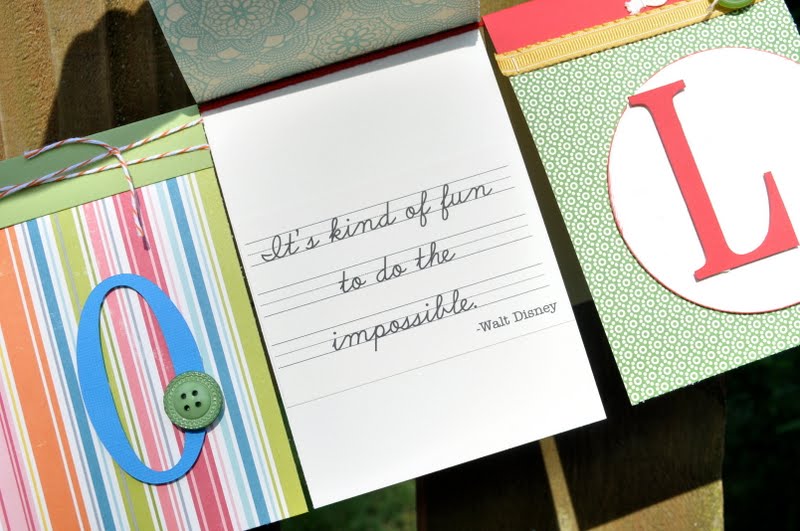 O
It's kind of fun
to do the
impossible.
-Walt Disney
L